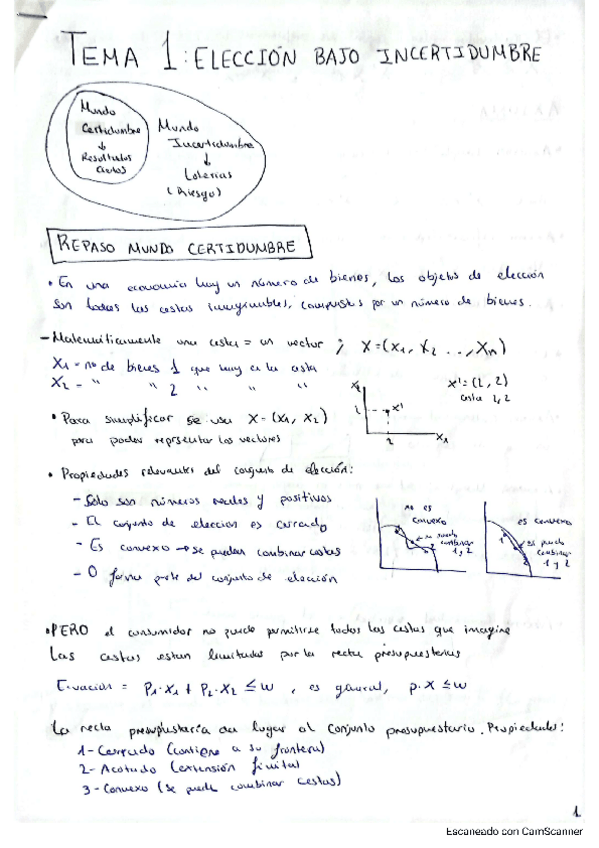 TEMA 1: ELECCIÓN BAJO INCERTIDUMBRE
Mundo
Certidumbre
↓
Resultados
Ciertos
Mundo
Incertidumbre
↓
Loterías
(Riesgo)
REPASO MUNDO CERTIDUMBRE
• En una economía hay un número de bienes, los objetos de elección
son todas las cestas imaginables, compuestas por un número de bienes.
- Matemáticamente una cesta = un vector ; X=(X1, X2 ..., Xn)
X1 = no de bienes 1 que hay en la cesta
X2 = " " 2 " " "
• Para simplificar se usa X=(X1, X2)
para poder representar los vectores
X2
X1
2
x'
x'=(2,2)
cesta 2,2
• Propiedades relevantes del conjunto de elección:
- Solo son números reales y positivos
- El conjunto de eleccion es cerrado
- Es convexo → se pueden combinar cestas
- O forma parte del conjunto de elección
no es
convexo
no puedo
combinar
1 y 2
es convexo
1
es puedo
combinar
1 y 2
• PERO el consumidor no puede permitirse todas las cestas que imagine
Las cestas estan limitadas por la recta presupuestaria
Ecuación = P1·X1 + P2·X2 ≤ w , es general, p·X ≤ w
La recta presupuestaria da lugar al conjunto presupuestario. Propiedades:
1- Cerrado (contiene a su frontera)
2- Acotado (extensión finita)
3- Convexo (Se puede combinar cestas)
1
Escaneado con CamScanner